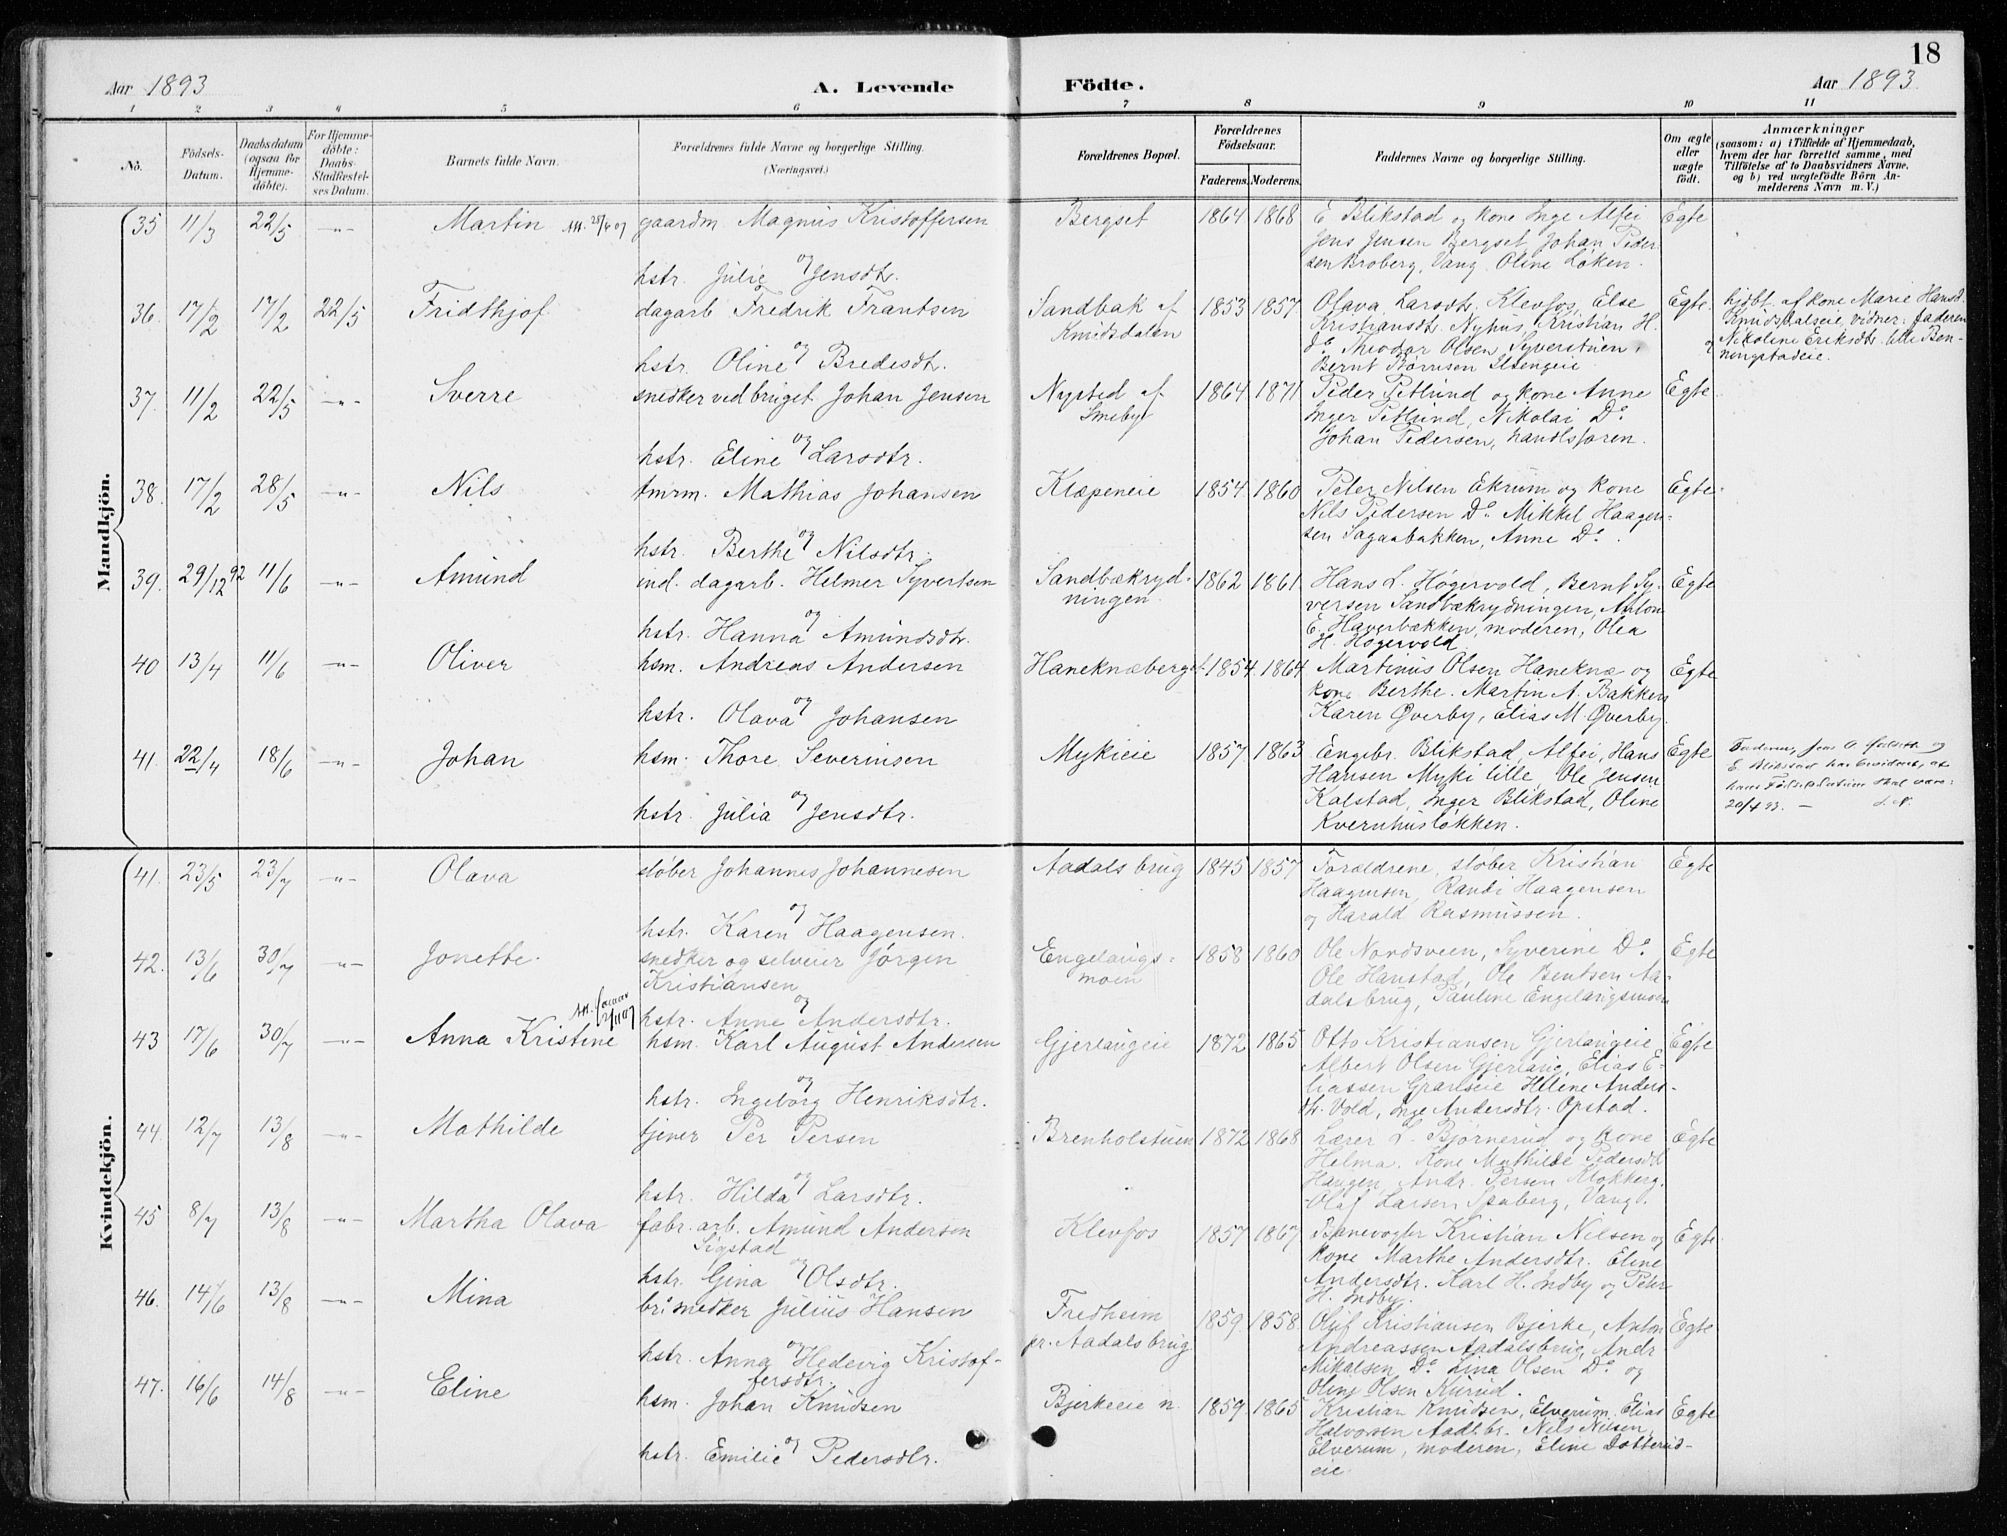 18
Aar 1893 A. Levende Födte. Aar 1893.
1 2 3 4 5 6 7 8 9 10 11
No.
Födsels-Datum.
Daabsdatum (ogsaa for Hjemmedöbte).
For Hjemmedöbte: Daabs-Stadfæstelses Datum.
Barnets fulde Navn.
Forældrenes fulde Navne og borgerlige Stilling.
(Næringsvei.)
Forældrenes Bopæl.
Forældrenes Födselsaar.
Faderens. Moderens.
Faddernes Navne og borgerlige Stilling.
Om ægte eller uægte födt.
Anmærkninger
(saasom: a) i Tilfælde af Hjemmedaab, hvem der har forrettet samme, med Tilföielse af to Daabsvidners Navne, og b) ved uægtefödte Börn Anmelderens Navn m. V.)
Mandkjön.
35 11/3 22/5 -"- Martin Att. 25/6 07 gaardm Magnus Kristoffersen
og
hstr. Julie Jensdtr.
Bergset 1864 1868 E Blikstad og kone Inge Alfei
Jens Jensen Bergset, Johan Peder-
sen Broberg, Vang. Oline Løken.
Egte
36. 17/2 17/2 22/5 Fridthjof dagarb Fredrik Frantsen
og
hstr. Oline Bredesdtr.
Sandbak af
Knudsdalen
1853 1857 Olava Larsdtr. Klevfos, Else
Kristiansdtr. Nyhus, Kristian H.
do Theodor Olsen Syverstuen,
Bernt Børresen Ilsengeie
Egte. hjdbt. af kone Marie Hansd.
Knudsdalseie, vidner: faderen
og Nikoline Eriksdtr. lille Ben-
ningstadeie.
37. 11/2 22/5 -"- Sverre snedker ved bruget Johan Jensen
og
hstr. Eline Larsdtr.
Nysted af
Smeby
1864 1871 Peder Petlund og kone Anne
Inger Petlund, Nikolai Do.
Johan Pedersen, handlsforen.
Egte.
38. 17/2 28/5 -"- Nils tmrm. Mathias Johansen
og
hstr. Berthe Nilsdtr.
Klæpeneie 1854 1860 Peter Nilsen Ekrum og kone
Nils Pedersen Do. Mikkel Haagen-
sen Sagaabakken, Anne Do.
Egte
39. 29/12 92 11/6 -"- Amund ind. dagarb. Helmer Syvertsen
og
hstr. Hanna Amundsdtr.
Sandbækryd-
ningen.
1862 1861 Hans L. Høgervold, Bernt Sy-
versen Sandbækrydningen, Anton
E. Haverbækken, moderen, Olea
H. Høgervold
Egte
40 13/4 11/6 -"- Oliver hsm. Andreas Andersen
og
hstr. Olava Johansen
Haneknæberget 1854. 1864 Martinus Olsen Haneknæ og
kone Berthe. Martin A. Bakken
Karen Øverby, Elias M. Øverby.
Egte
41. 22/4 18/6 -"- Johan hsm. Thore Severinsen
og
hstr. Julia Jensdtr.
Mykieie 1857. 1863 Engebr. Blikstad, Alfei, Hans
Hansen Myki lille, Ole Jensen
Kalstad, Inger Blikstad, Oline
Kvernhusløkken.
Egte
E. Blikstad har bevidnet, at
hans Fødselsdatum skal være:
20/4 93. –
Kvindekjön.
41. 23/5 23/7 -"- Olava støber Johannes Johannesen
og
hstr. Karen Haagensen.
Aadals brug 1845 1857 Forældrene, støber Kristian
Haagensen, Randi Haagensen
og Harald Rasmussen.
Egte
42. 13/6 30/7 -"- Jonette. snedker og selveier Jørgen
Kristiansen
og
hstr. Anne Andersdtr.
Engelaugs-
moen
1858 1860 Ole Nordsveen, Syverine Do.
Ole Hanstad, Ole Bentsen Aa-
dalsbrug, Pauline Engelaugsmoen
Egte
43 17/6 30/7 -"- Anna Kristine Att. 2/11 07 hsm. Karl August Andersen
og
hstr. Ingeborg Henriksdtr.
Gjerlaugeie 1872 1865 Otto Kristiansen Gjerlaugeie
Albert Olsen Gjerlaug, Elias E-
liassen Granseie Helene Anders-
dtr. Vold, Inge Andersdtr. Opstad.
Egte
44. 12/7 13/8 -"- Mathilde tjener Per Persen
og
hstr. Hilda Larsdtr.
Brenholstuen 1872 1868 Lærer L. Bjørnerud og kone
Helma. Kone Mathilde Pedersdtr
Haugen, Andr. Persen Klokkerg.
Olaf Larsen Spaberg, Vang.
Egte
45 8/7 13/8 -"- Martha Olava fabr. arb. Amund Andersen
Sigstad
og
hstr. Gina Olsdtr.
Klevfos 1857 1867 Banevogter Kristian Nilsen og
kone Marthe Andersdtr. Eline
Andersdtr. Karl H. Indby og Peter
H. Indby.
Egte
46. 14/6 13/8 -"- Mina br: snedker Julius Hansen
og
hstr. Anna Hedevig Kristof-
fersdtr.
Fredheim
pr. Aadalsbrug
1859. 1858. Oluf Kristiansen Bjerke, Anton
Andreassen Aadalsbrug, Andr
Mikalsen, Do. Lina Olsen Do og
Oline Olsen Kurud.
Egte
47. 16/6 14/8 -"- Eline hsm. Johan Knudsen
og
hstr. Emilie Pedersdtr.
Bjerkeeie n. 1859. 1865 Kristian Knudsen, Elverum, Elias
Halvorsen Aadt.br. Nils Nilsen,
Elverum, moderen, Eline Dotterud-
eie.
Egte